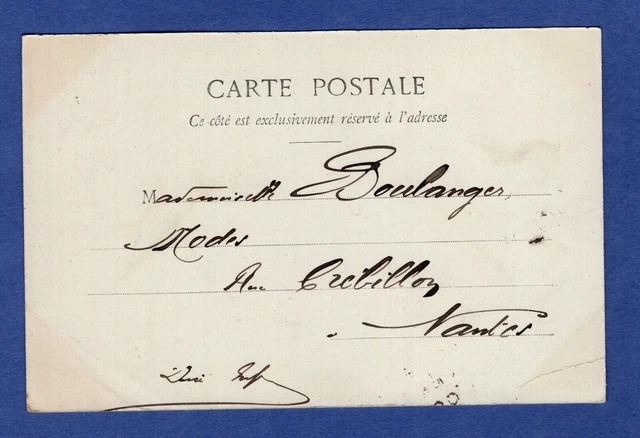 CARTE POSTALE
Ce côté est exclusivement réservé à l'adresse
Mademoiselle Boulanger
Modes
Rue Crébillon
Nantes